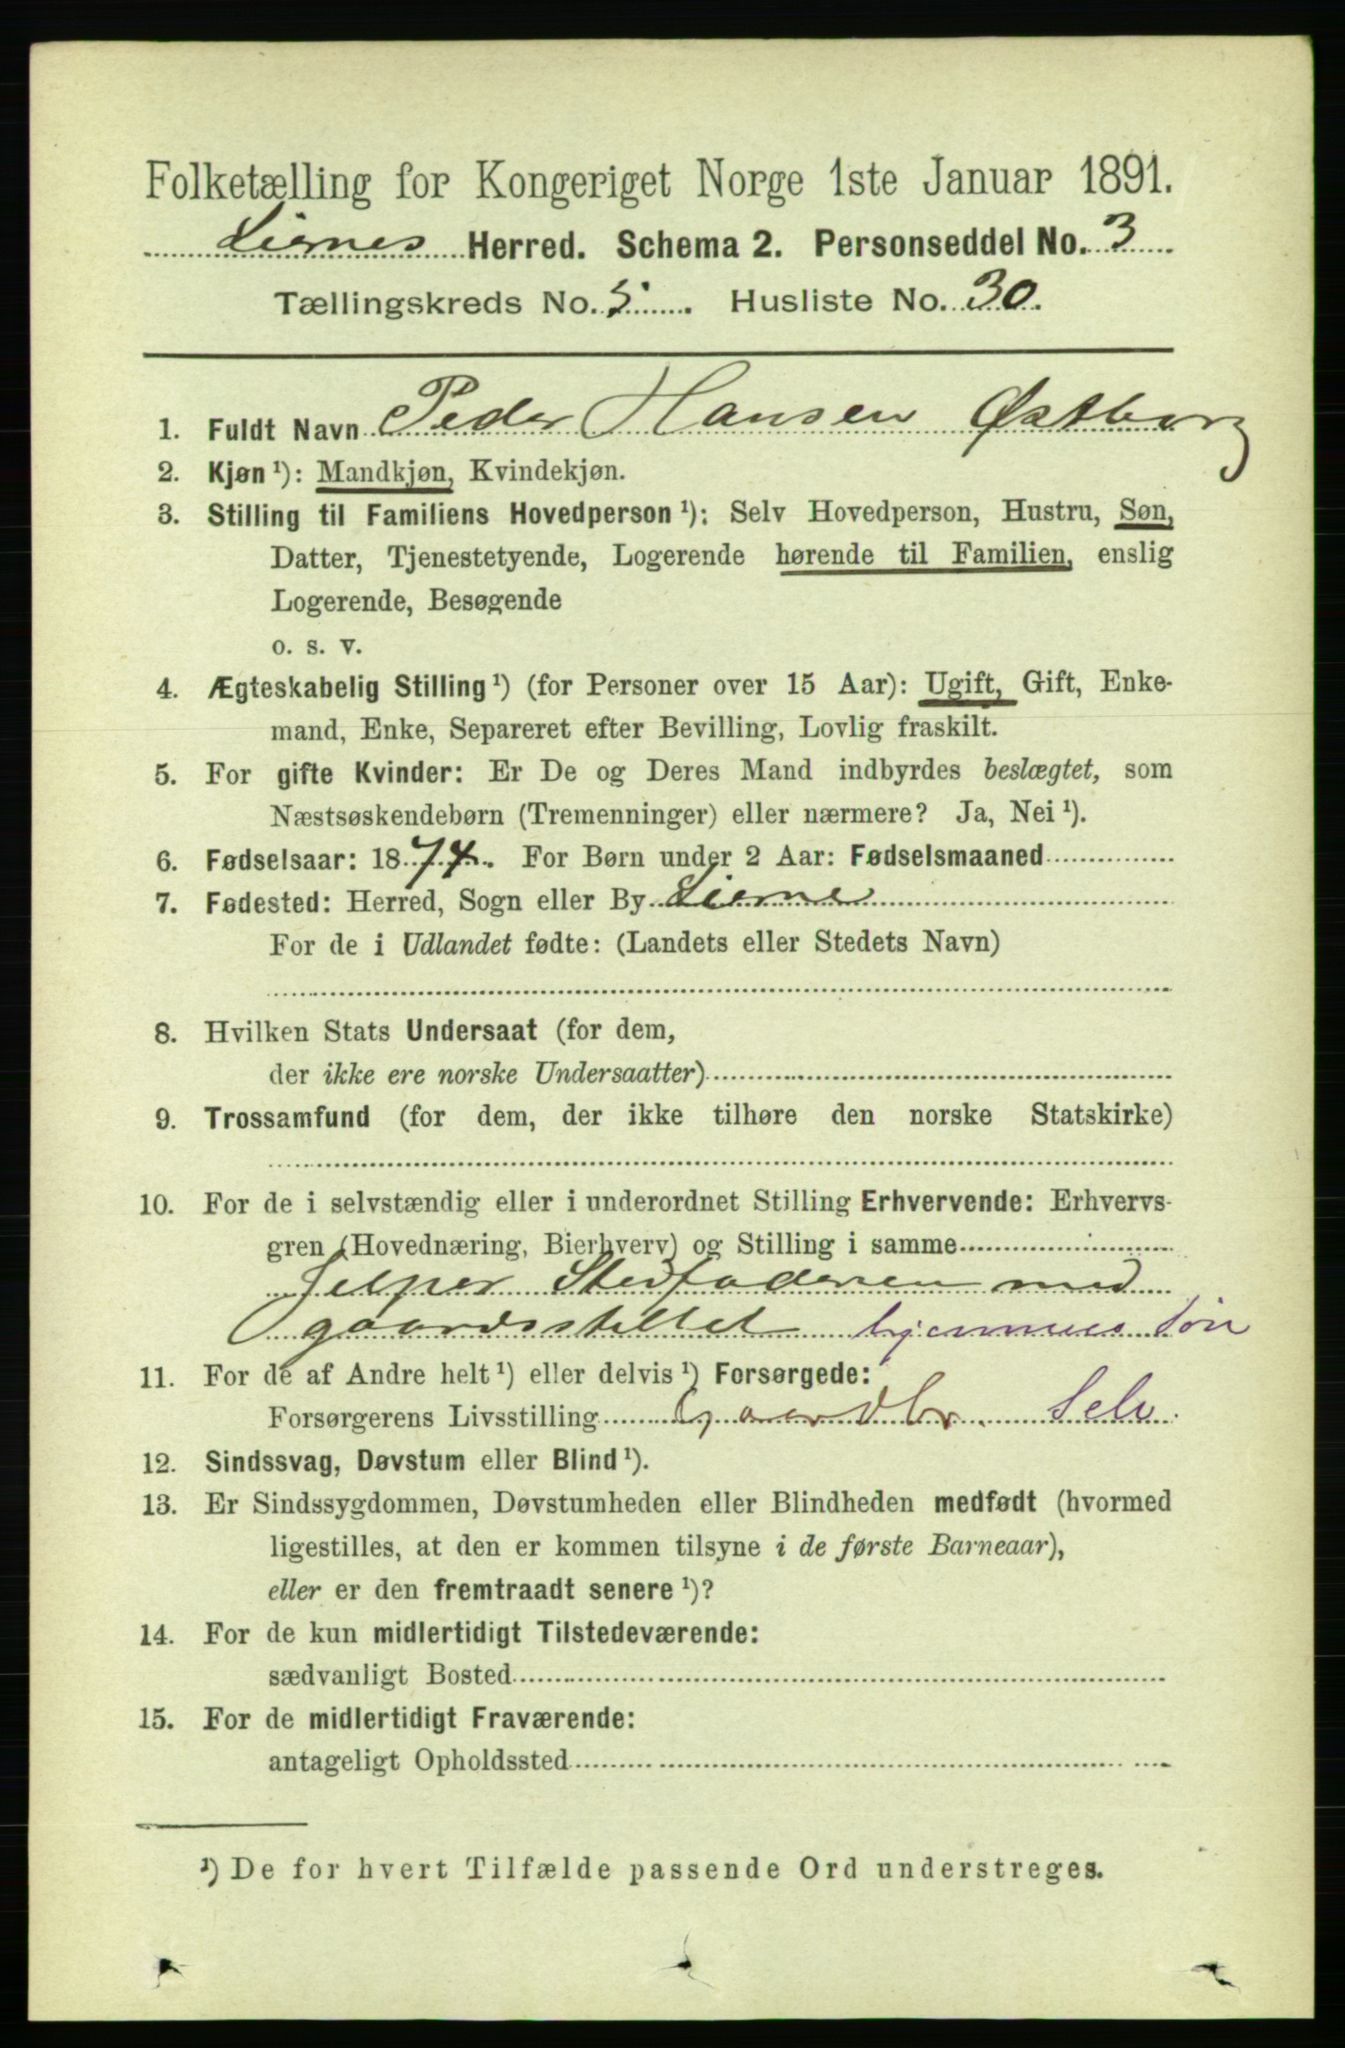 Folketælling for Kongeriget Norge 1ste Januar 1891.
Liernes Herred. Schema 2. Personseddel No. 3
Tællingskreds No. 5. Husliste No. 30.
1. Fuldt Navn Peder Hansen Østborg
2. Kjøn ¹): Mandkjøn, Kvindekjøn.
3. Stilling til Familiens Hovedperson ¹): Selv Hovedperson, Hustru, Søn,
Datter, Tjenestetyende, Logerende hørende til Familien, enslig
Logerende, Besøgende
o. s. v.
4. Ægteskabelig Stilling ¹) (for Personer over 15 Aar): Ugift, Gift, Enke-
mand, Enke, Separeret efter Bevilling, Lovlig fraskilt.
5. For gifte Kvinder: Er De og Deres Mand indbyrdes beslægtet, som
Næstsøskendebørn (Tremenninger) eller nærmere? Ja, Nei ¹).
6. Fødselsaar: 1874. For Børn under 2 Aar: Fødselsmaaned
7. Fødested: Herred, Sogn eller By Lierne
For de i Udlandet fødte: (Landets eller Stedets Navn)
8. Hvilken Stats Undersaat (for dem,
der ikke ere norske Undersaatter)
9. Trossamfund (for dem, der ikke tilhøre den norske Statskirke)
10. For de i selvstændig eller i underordnet Stilling Erhvervende: Erhvervs-
gren (Hovednæring, Bierhverv) og Stilling i samme
Jelper Stedfaderen med
gaardsstellet hjemmev. Søn
11. For de af Andre helt ¹) eller delvis ¹) Forsørgede:
Forsørgerens Livsstilling Gaardbr. Selv.
12. Sindssvag, Døvstum eller Blind ¹).
13. Er Sindssygdommen, Døvstumheden eller Blindheden medfødt (hvormed
ligestilles, at den er kommen tilsyne i de første Barneaar),
eller er den fremtraadt senere ¹)?
14. For de kun midlertidigt Tilstedeværende:
sædvanligt Bosted
15. For de midlertidigt Fraværende:
antageligt Opholdssted
¹) De for hvert Tilfælde passende Ord understreges.